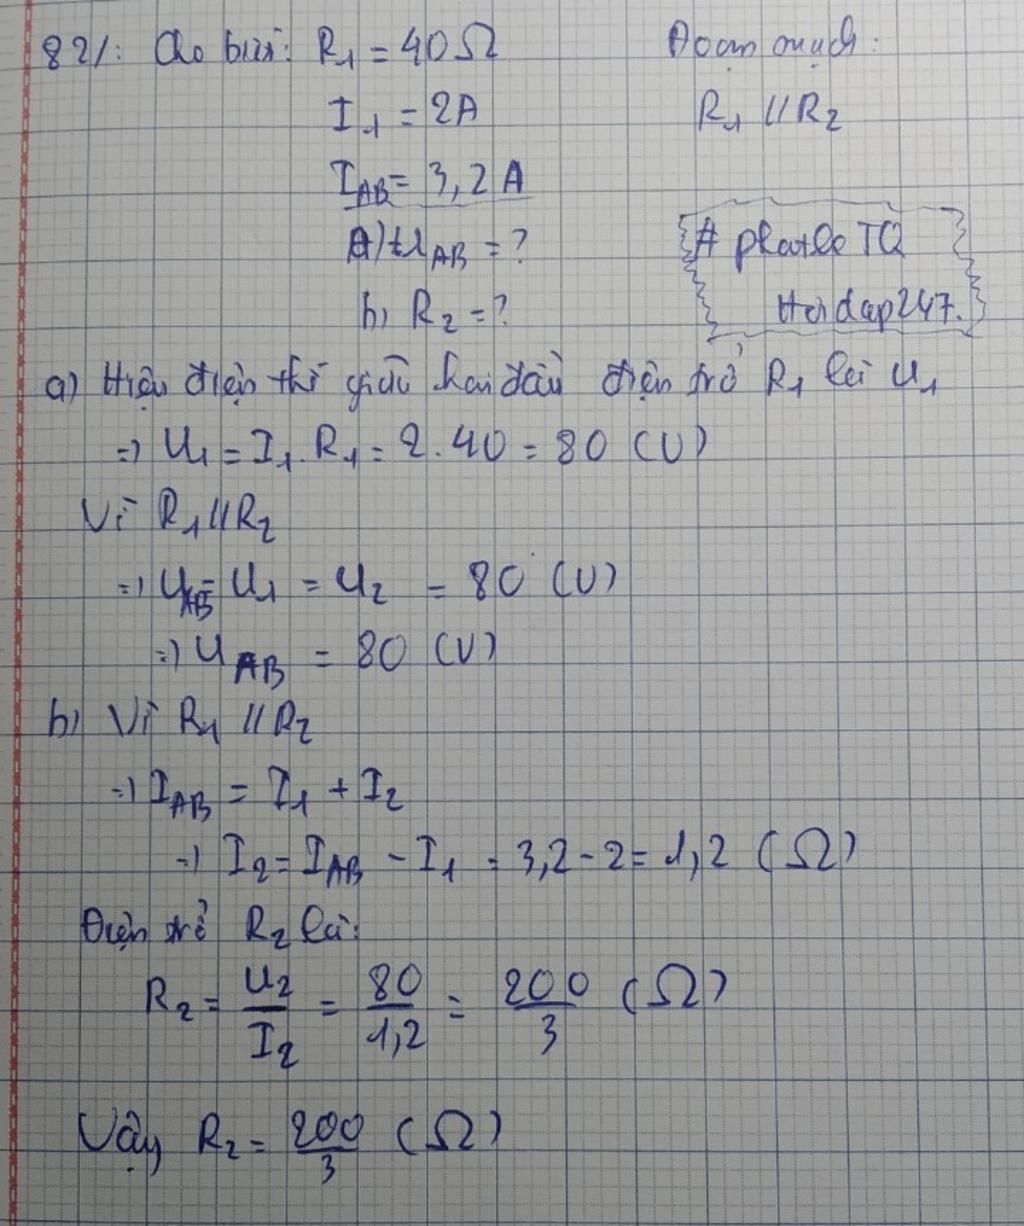 82/: Cho biết: R₁ = 40Ω Đoạn mạch:
I₁ = 2A R₁ // R₂
I_AB = 3,2 A
a) U_AB = ? # phatle TQ
b, R₂ = ? Hoidap247.
a) Hiệu điện thế giữa hai đầu điện trở R₁ là U₁
=) U₁ = I₁. R₁ = 2. 40 = 80 (V)
Vì R₁ // R₂
=) U_AB = U₁ = U₂ = 80 (V)
=) U_AB = 80 (V)
b) Vì R₁ // R₂
=) I_AB = I₁ + I₂
=) I₂ = I_AB - I₁ = 3,2 - 2 = 1,2 (Ω)
Điện trở R₂ là:
R₂ = U₂/I₂ = 80/1,2 = 200/3 (Ω)
Vậy R₂ = 200/3 (Ω)